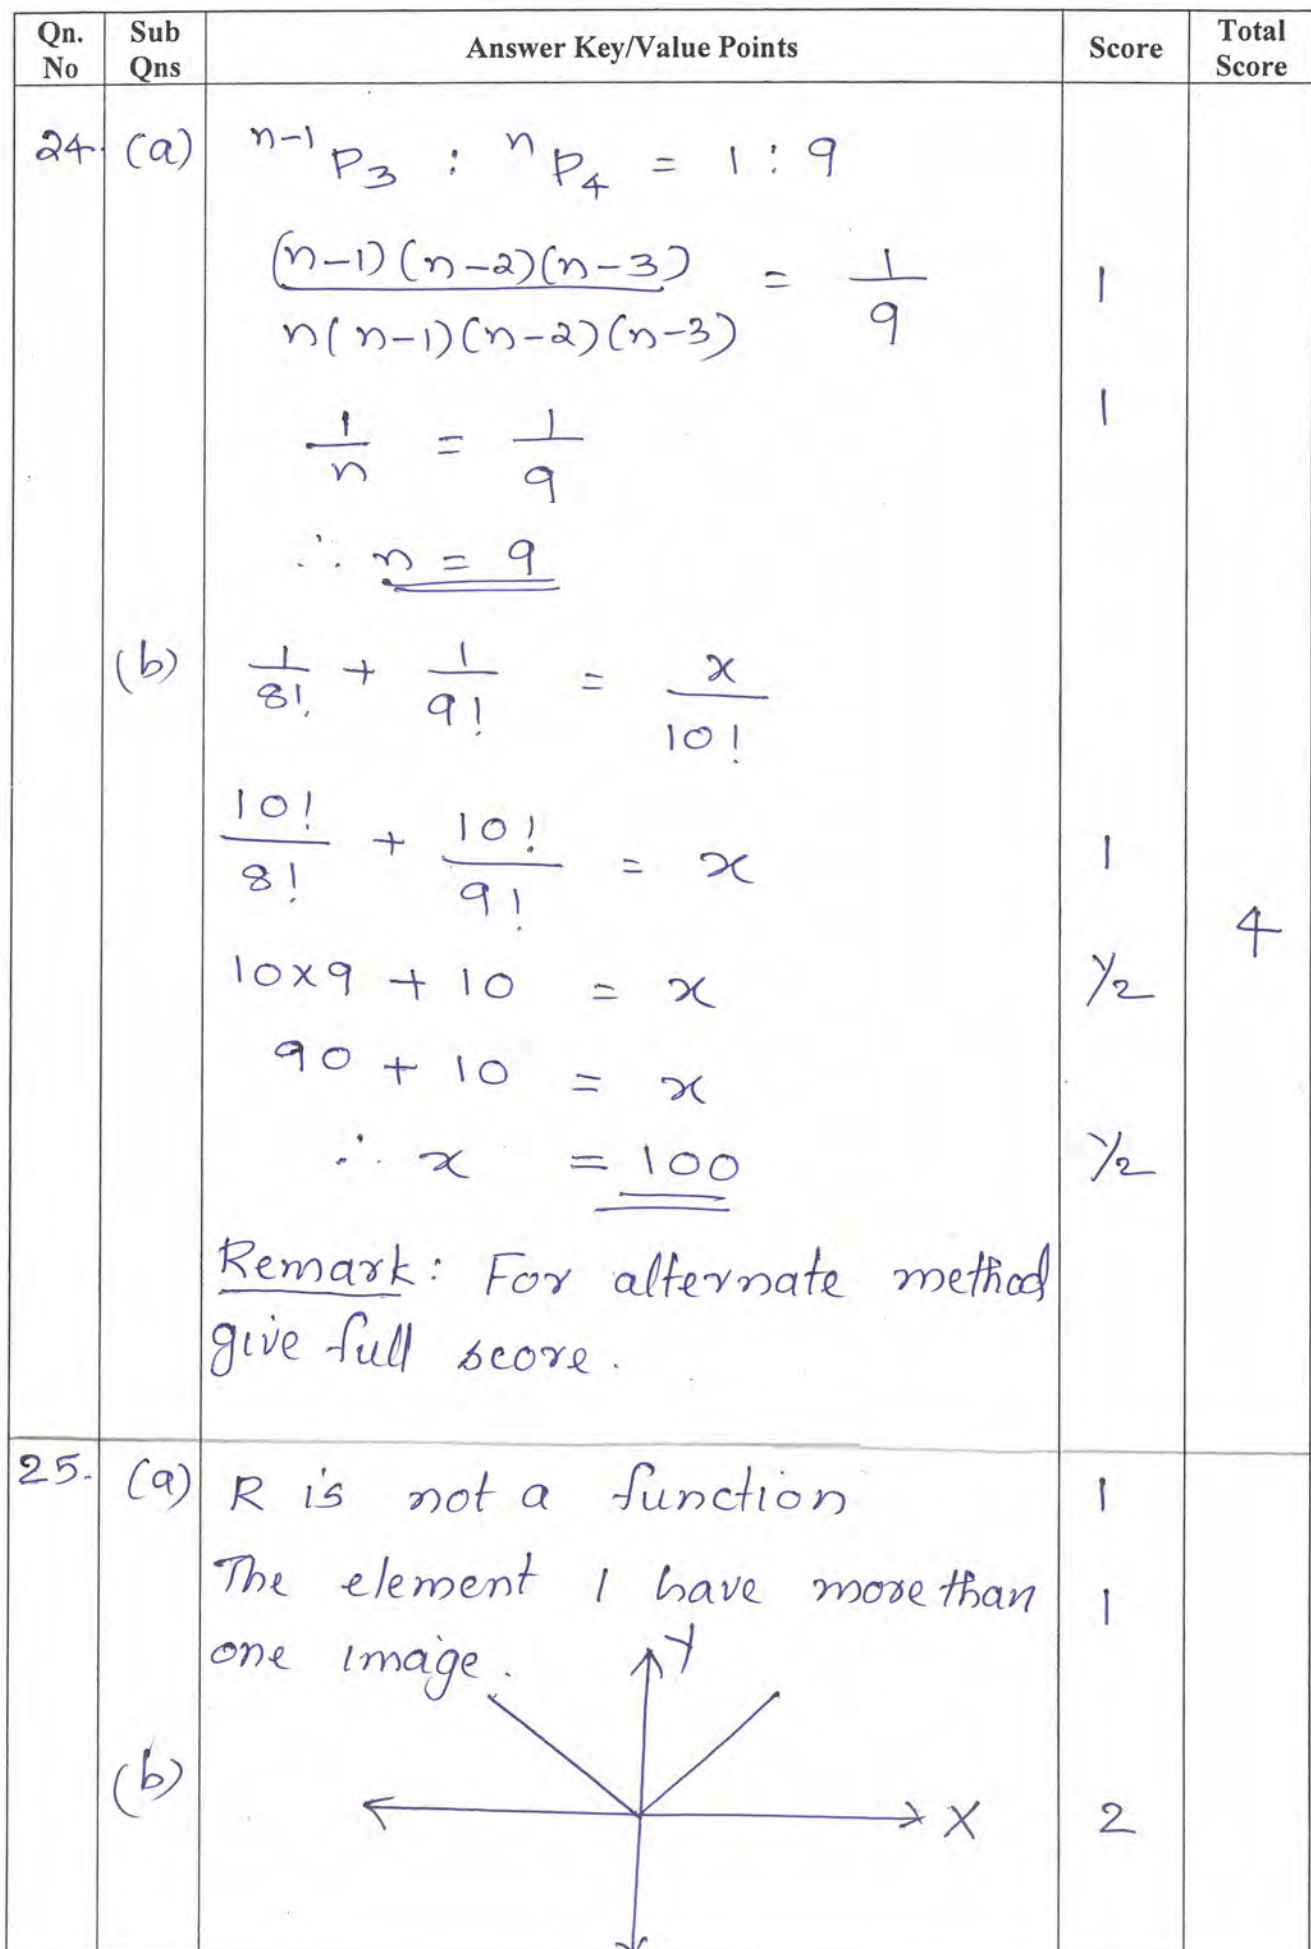 Qn. No Sub Qns Answer Key/Value Points Score Total Score
24. (a) n-1P3 : nP4 = 1 : 9
(n-1)(n-2)(n-3) / n(n-1)(n-2)(n-3) = 1/9 1
1/n = 1/9 1
∴ n = 9
(b) 1/8! + 1/9! = x/10!
10!/8! + 10!/9! = x 1
4
10×9 + 10 = x 1/2
90 + 10 = x
∴ x = 100 1/2
Remark: For alternate method
give full score.
25. (a) R is not a function 1
The element 1 have more than 1
one image.
Y
(b) X 2